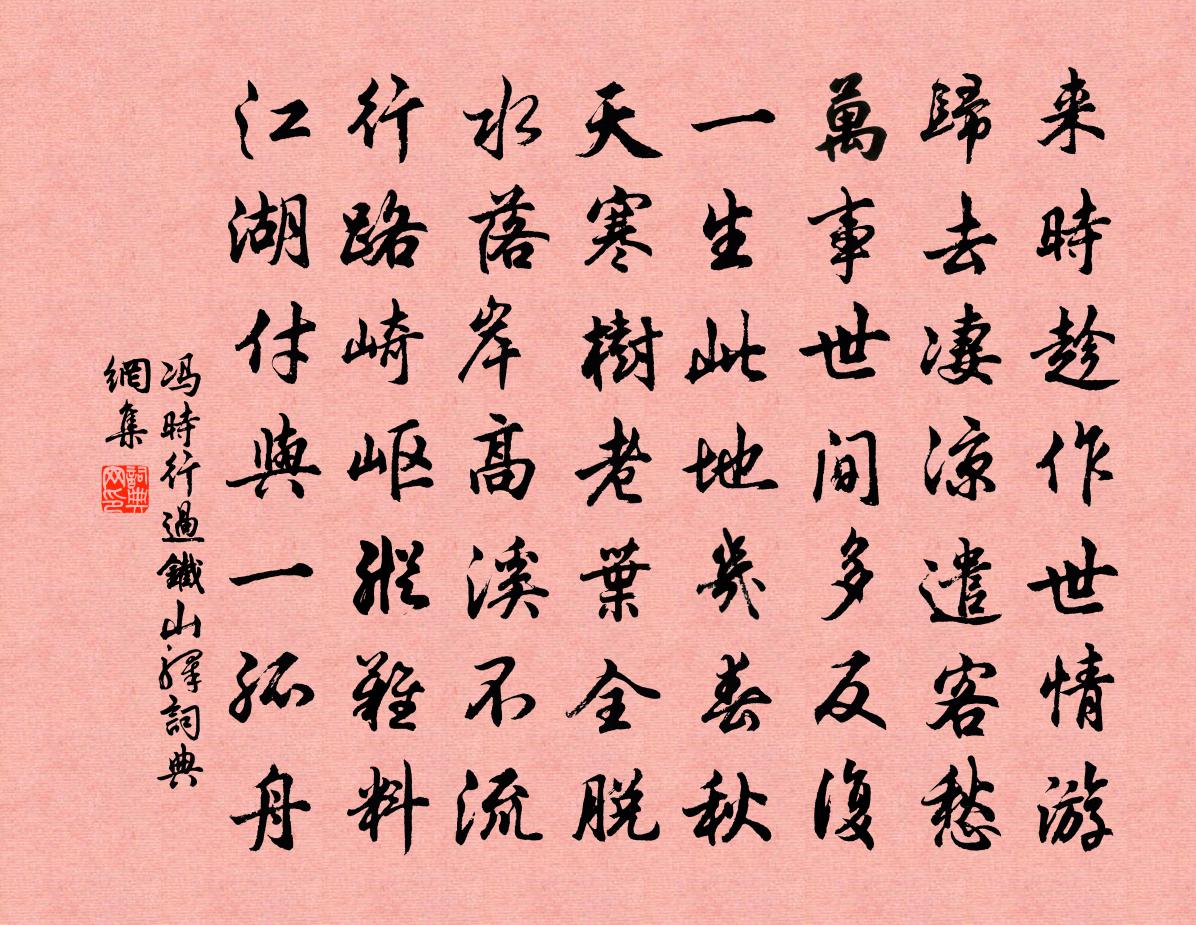 来時趁作世情游
歸去淒涼遣客愁
萬事世間多反復
一生此地幾春秋
天寒樹老葉全脫
水落岸高溪不流
行路崎岖縱難料
江湖付與一孤舟
冯時行過鐵山驛詞典
網集
詞典
网印